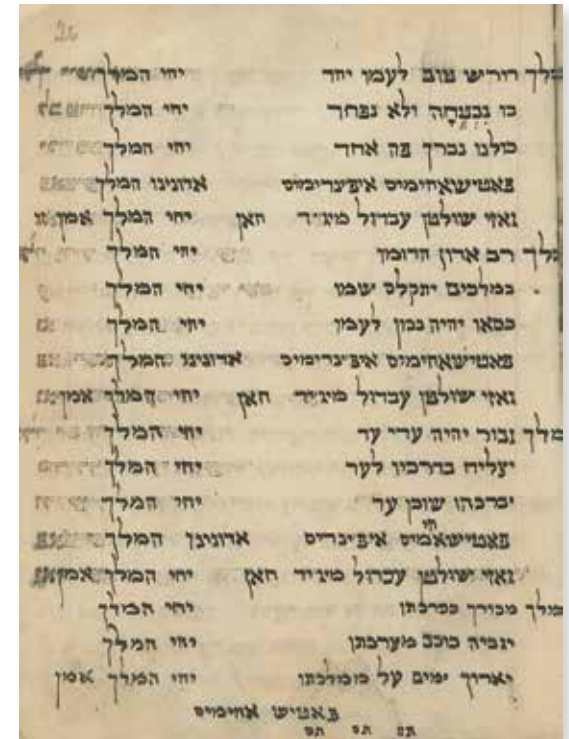 מלך דוריש טוב לעמו יחד יחי המלך
בו נבטחה ולא נפחד יחי המלך
כולנו נברך פה אחד יחי המלך
פאטישאהימיס איפינדימיס אדונינו המלך
גאזי שולטן עבדול מיגיד חאן יחי המלך אמן
מלך רב אדון יחי המלך
במלכים יתקלס שמו יחי המלך
כסאו יהיה נכון לעמו יחי המלך
פאטישאהימיס איפינדימיס אדונינו המלך
גאזי שולטן עבדול מיגיד חאן יחי המלך אמן
מלך גבור יהיה עדי עד יחי המלך
יצליח בדרכיו לעד יחי המלך
יברכהו שוכן עד יחי המלך
פאטישאהימיס איפינדיס אדונינו המלך
גאזי שולטן עבדול מיגיד חאן יחי המלך אמן
מלך מבורך בברכתו יחי המלך
יגביה כוכב מערכתו יחי המלך
יאריך ימים על ממלכתו יחי המלך אמן
פאטיש אהימיס
תם תם תם